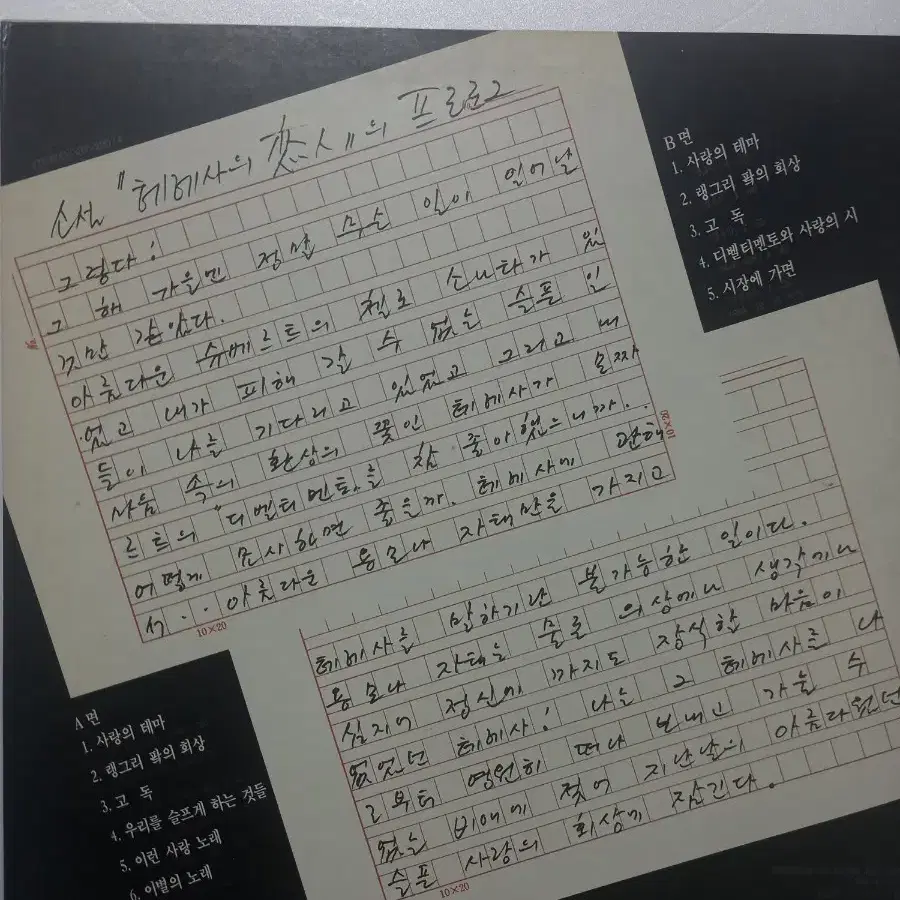 소설 "헤베사의 恋人"의 프롤로그
그렇다!
그 해 가을엔 정말 무슨 일이 일어날
것만 같았다.
아름다운 슈베르트의 첼로 소나타가 있
었고 내가 피해 갈 수 없는 슬픈 일
들이 나를 기다리고 있었고 그리고 내
사춘 속의 환상의 꽃인 헤베사가 모짜
르트의 "디벨티멘토"를 참 좋아했으니까..
어떻게 묘사하면 좋을까. 헤베사에 관해
서.. 아름다운 용모나 자태만을 가지고
10×20
10×20
헤베사를 말하기란 불가능한 일이다.
용모나 자태는 물론 의상에나 생각에나
심지어 정신에 까지도 장식할 마음이
없었던 헤베사! 나는 그 헤베사를 나
로부터 영원히 떠나 보내고 가눌 수
없는 비애에 젖어 지난날의 아름다웠던
슬픈 사랑의 회상에 잠긴다.
10×20
B면
1. 사랑의 테마
2. 랭그리 팍의 회상
3. 고 독
4. 디벨티멘토와 사랑의 시
5. 시장에 가면
A면
1. 사랑의 테마
2. 랭그리 팍의 회상
3. 고 독
4. 우리를 슬프게 하는 것들
5. 이런 사랑 노래
6. 이별의 노래